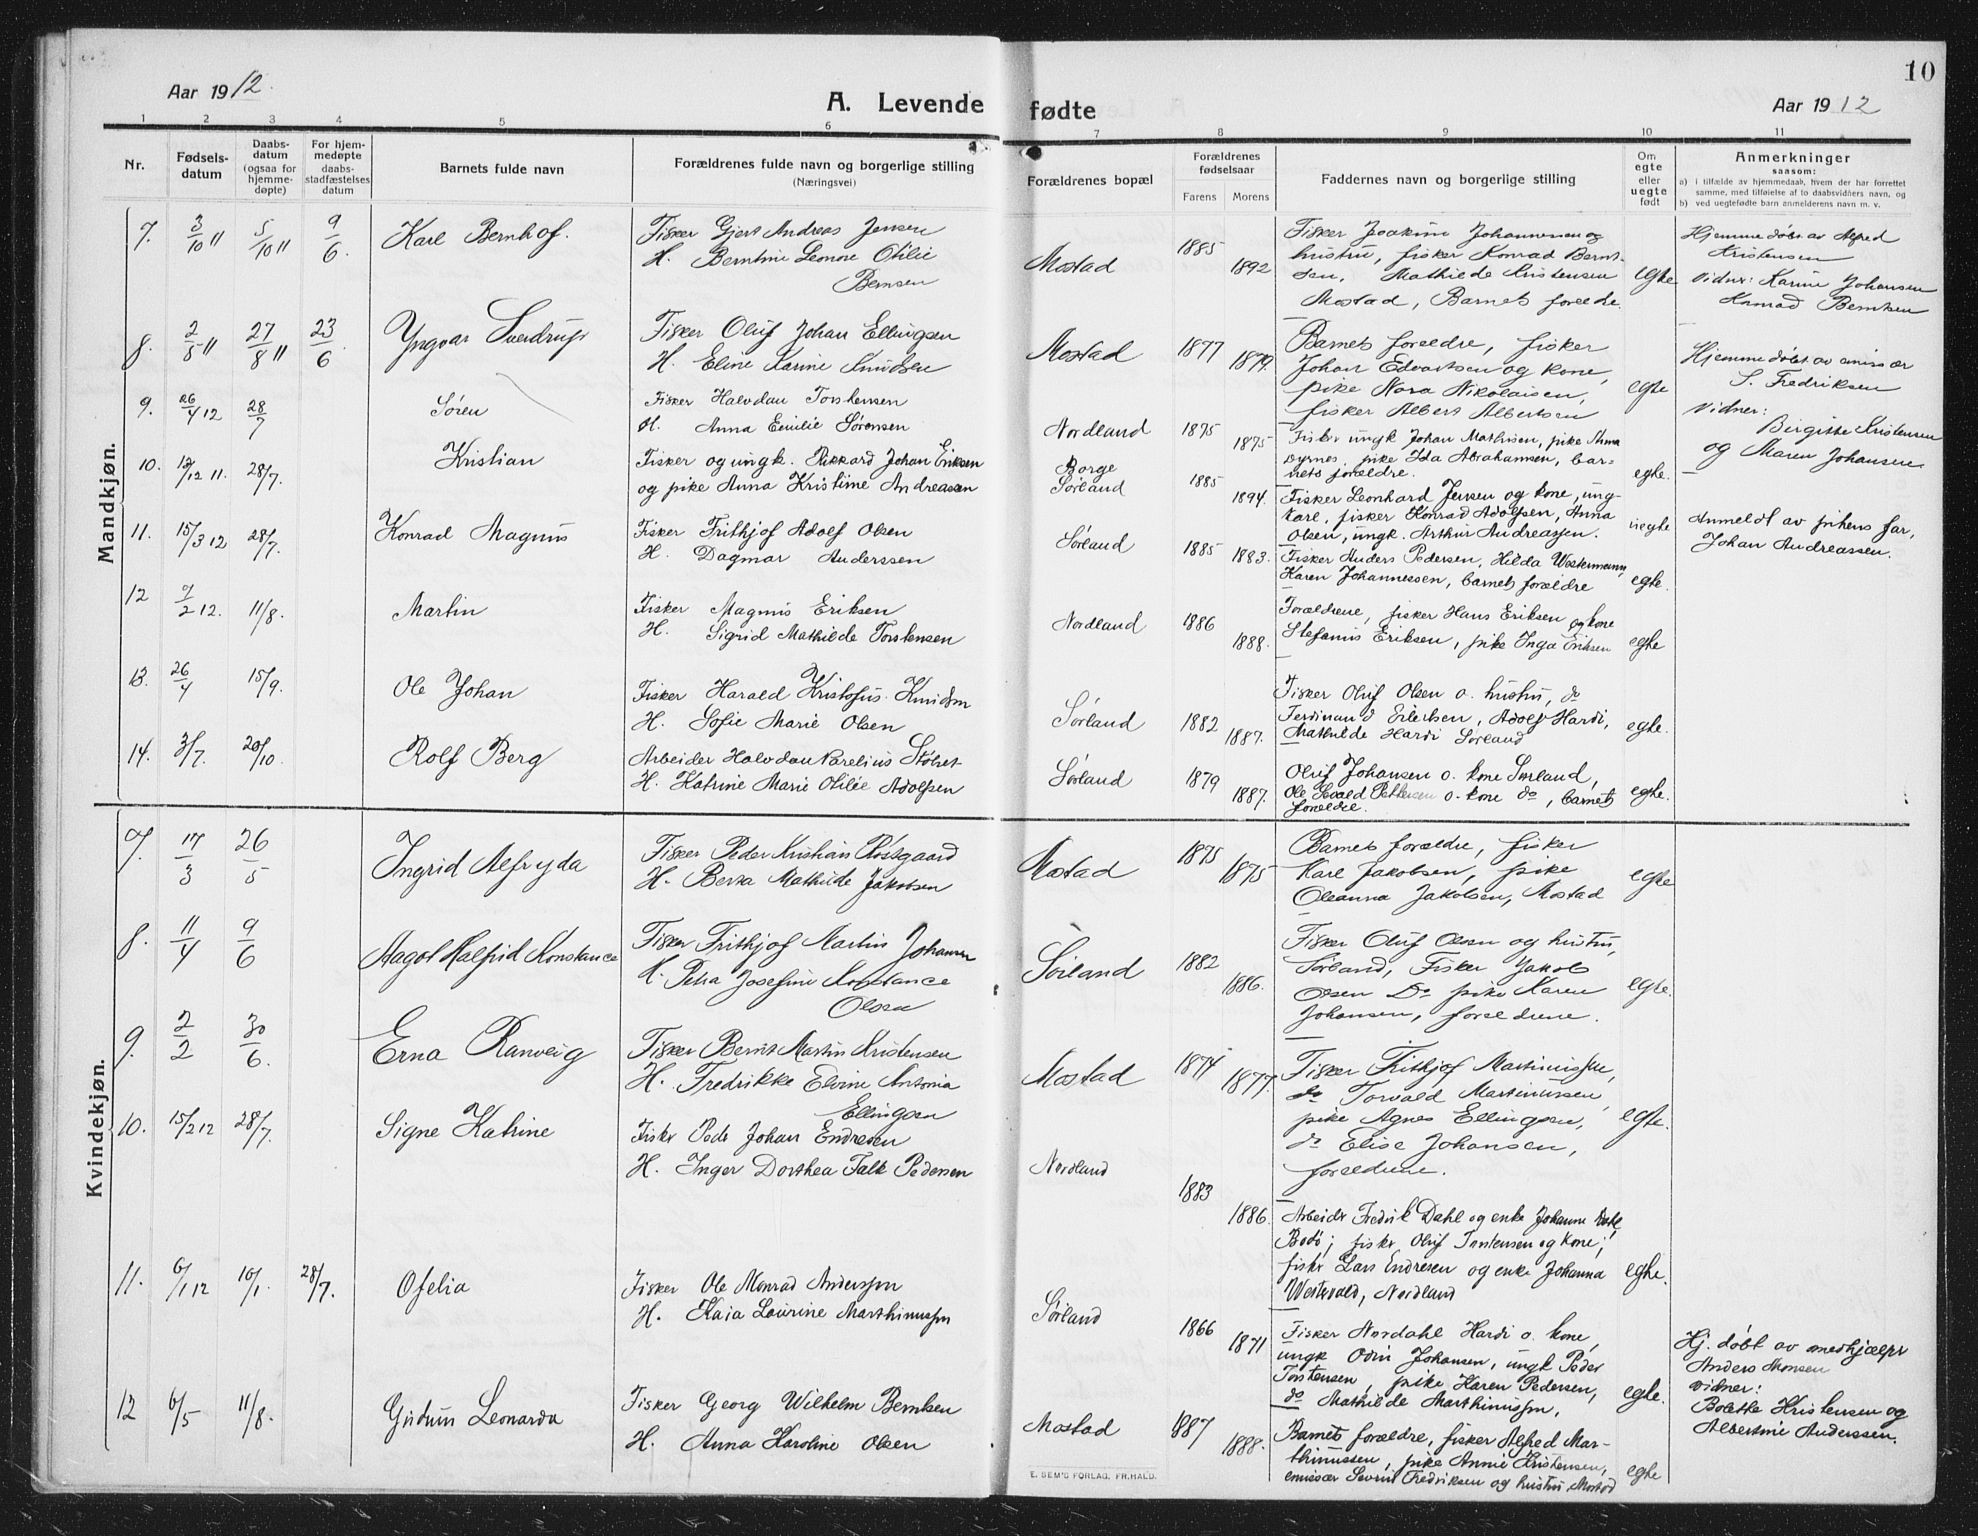 10
Aar 1912.
A. Levende fødte
Aar 1912
1 2 3 4 5 6 7 8 9 10 11
Nr.
Fødsels-
datum
Daabs-
datum
(ogsaa for
hjemme-
døpte)
For hjem-
medøpte
daabs-
stadfæstelses
datum
Barnets fulde navn
Forældrenes fulde navn og borgerlige stilling
(Næringsvei)
Forældrenes bopæl
Forældrenes
fødselsaar
Farens Morens
Faddernes navn og borgerlige stilling
Om
egte
eller
uegte
født
Anmerkninger
saasom:
a) i tilfælde av hjemmedaab, hvem der har forrettet
samme, med tilføielse af to daabsvidners navn, og
b) ved uegtefødte barn anmelderens navn m. v.
Mandkjøn.
7. 3/10 11 5/10 11 9/6. Karl Bernhof.
Fisker Gjert Andreas Jensen
H. Berntine Leonore Otilie
Bernsen
Mostad 1885 1892
Fisker Joakim Johannesen og
hustru, fisker Konrad Bernt-
sen, Mathilde Kristensen
Mostad, Barnets forældre.
egte
Hjemmedøbt av Alfred
Kristensen
Vidner: Karine Johansen
Konrad Berntsen
8. 2/5 11 27/8 11 23/6 Yngvar Sverdrup
Fisker Oluf Johan Ellingsen
H. Eline Karine Knudsen
Mostad 1877 1879.
Barnets forældre, fisker
Johan Edvartsen og kone,
pike Nora Nikolaisen,
fisker Albert Albertsen
egte
Hjemmedøbt av emissær
S. Fredriksen
Vidner:
Birgitte Kristensen
og Maren Johansen
9. 26/4 12 28/7 Søren
Fisker Halvdan Torstensen
H. Anna Emilie Sørensen
Nordland 1875 1875
Fisker ungk Johan Mathisen, pike Anna
Dyrnes, pike Ida Abrahamsen, bar-
nets forældre.
egte.
10. 12/12 11. 28/7. Kristian
Fisker og ungk. Rikkard Johan Eriksen
og pike Anna Kristine Andreasen
Borge
Sørland 1885 1894.
Fisker Leonhard Jensen og kone, ung-
karl, fisker Konrad Adolfsen, Anna
Olsen, ungk. Arthur Andreassen.
uegte
Anmeldt av pikens far,
Johan Andreassen.
11. 15/3 12 28/7. Konrad Magnus
Fisker Frithjof Adolf Olsen
H. Dagmar Anderssen
Sørland 1885 1883.
Fisker Anders Pedersen, Hilda Westermann,
Karen Johannessen, barnets forældre
egte.
12 9/2 12. 11/8. Martin
Fisker Magnus Eriksen
H. Sigrid Mathilde Torstensen
Nordland 1886 1888.
Forældrene, fisker Hans Eriksen og kone
Stefanus Eriksen, pike Inga Eriksen
egte
13. 26/4 15/9. Ole Johan
Fisker Harald Kristofus. Knudsen
H. Sofie Marie Olsen
Sørland 1882 1887.
Fisker Oluf Olsen o. hustru, do
Ferdinand Eilertsen, Adolf Hardi,
Mathilde Hardi Sørland
egte.
14. 3/7. 20/10 Rolf Berg
Arbeider Halvdan Norelius Stølset
H. Katrine Marie Otilie Adolfsen
Sørland 1879 1887.
Oluf Johansen o. kone Sørland,
Ole Hvald Pettersen o. kone do, barnets
forældre.
egte.
Kvindekjøn.
7. 17/3 26/5 Ingrid Alfryda
Fisker Peder Kristian Røstgaard
H. Berta Mathilde Jakobsen
Mostad 1875 1875
Barnets forældre, fisker
Karl Jakobsen, pike
Oleanna Jakobsen, Mostad
egte
8. 11/4 9/6 Aagot Halfrid Konstance
Fisker Frithjof Martin Johansen
H. Petra Josefine Konstance
Olsen
Sørland 1882 1886.
Fisker Oluf Olsen og hustru,
Sørland, Fisker Jakob
Olsen Do pike Karen
Johansen, forældrene.
egte.
9. 2/2 30/6. Erna Ranveig
Fisker Bernt Martin Kristensen
H. Fredrikke Elvine Antonia
Ellingsen
Mostad 1874 1877.
Fisker Frithjof Martinussen,
do Torvald Martinussen,
pike Agnes Ellingsen,
do Elise Johansen,
forældrene.
egte.
10. 15/2 12 28/7. Signe Katrine
Fisker Peder Johan Endresen
H. Inger Dorthea Falk Pedersen
Nordland 1883 1886.
Arbeider Fredrik Dahl og enke Johanne Dahl
Bodø; fisker Oluf Torstensen og kone;
fisker Lars Endresen og enke Johanna
Westvold, Nordland
egte.
11. 6/1 12 10/1. 28/7. Ofelia
Fisker Ole Monrad Anderssen
H. Kaia Laurine Marthinussen
Sørland 1866 1871
Fisker Nordahl Hardi o. kone,
ungk Odin Johansen, ungk Peder
Torstensen, pike Karen Pedersen,
do Mathilde Marthinussen,
egte.
Hj. døbt av medhjælper
Anders Monsen
Vidner:
Bolette Kristensen og
Albertine Anderssen.
12 6/5 11/8. Gudrun Leonarda
Fisker Georg Wilhelm Berntsen
H. Anna Karoline Olsen
Mostad 1887 1888.
Barnets forældre, fisker Alfred Mar-
thinussen, pike Annie Kristensen,
emissær Severin Fredriksen og hustru Mostad
egte
E. SEM'S FORLAG, FR.HALD.